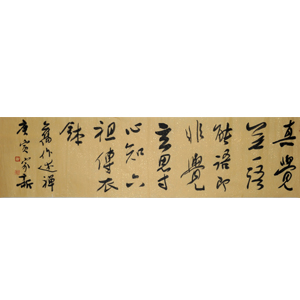 真覺
無一語
能語即
非覺
玄思寸
心知六
祖傳衣
鉢
舊作述禪
庚寅